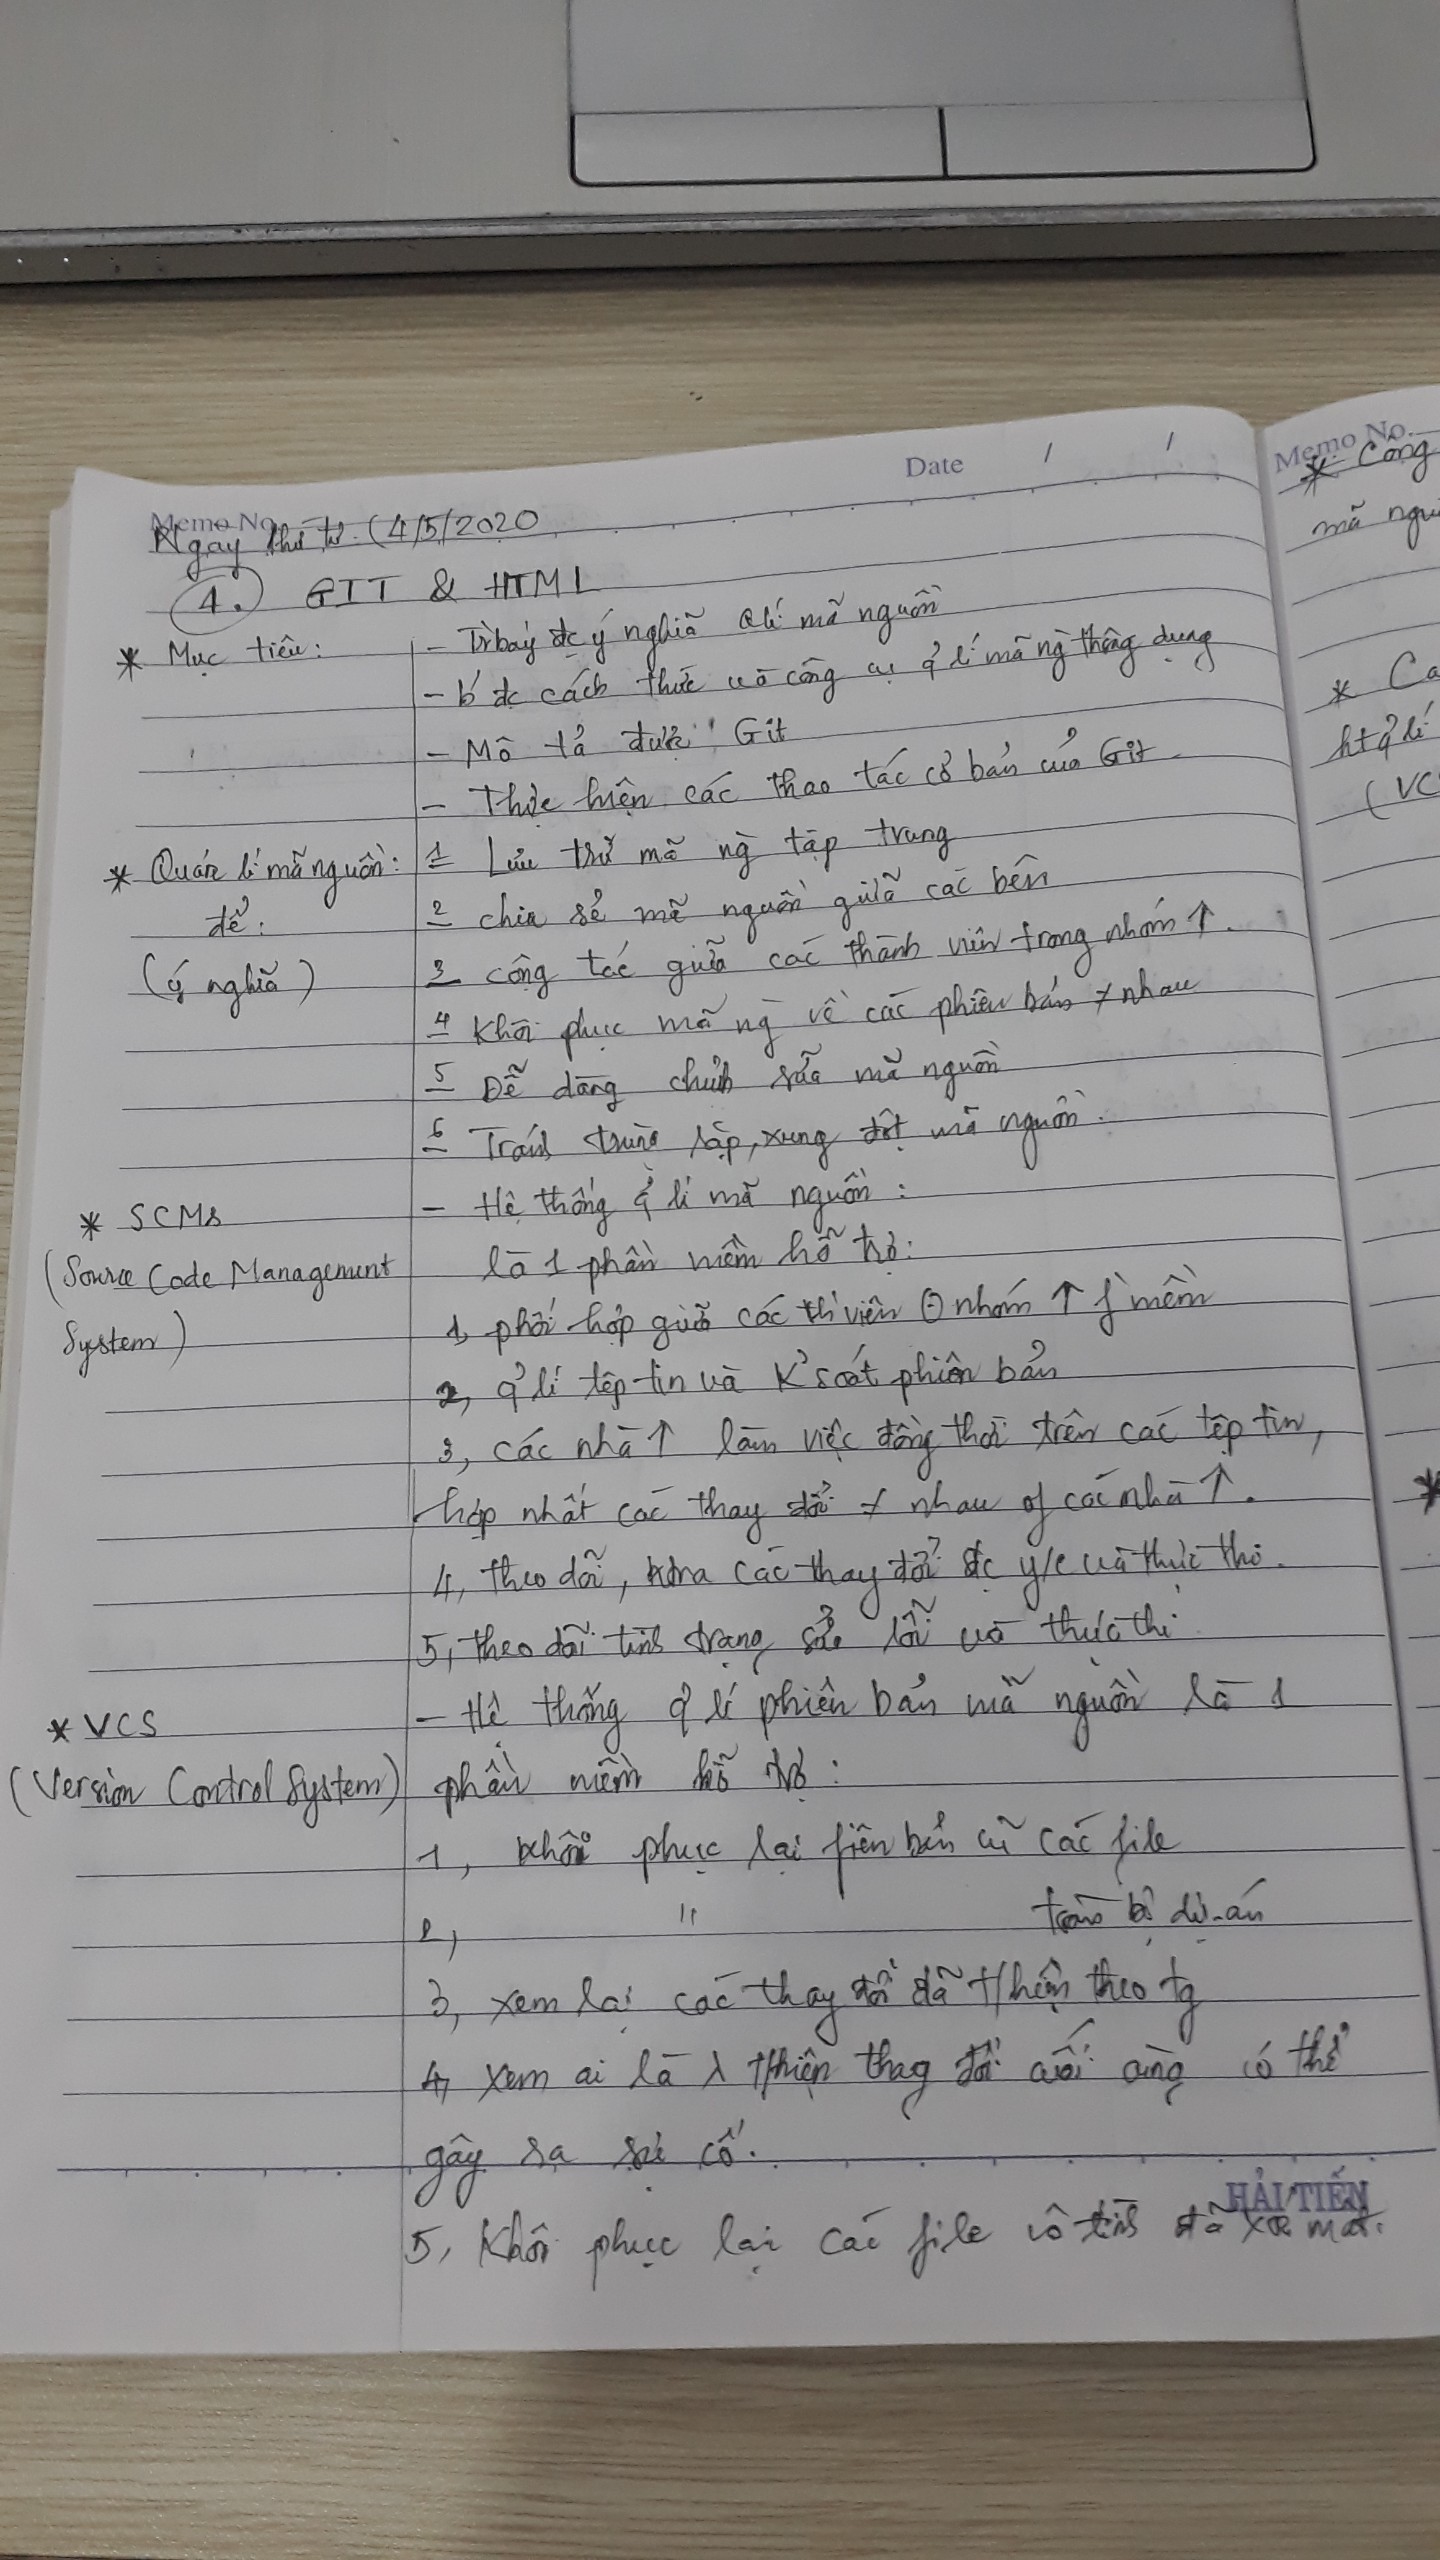 Date / /
Memo No.
Ngày thứ tư (4/5/2020
4. GIT & HTML
* Mục tiêu: - Tr`bày đc ý nghĩa Qlí mã nguồn
- b' đc cách thức và công cụ q̉ lí mã ng` thông dụng
- Mô tả được Git
- Thực hiện các thao tác cơ bản của Git
* Quản lí mã nguồn: 1 Lưu trữ mã ng` tập trung
để: 2 chia sẻ mã nguồn giữa các bên
(ý nghĩa) 3 cộng tác giữa các thành viên trong nhóm ↑.
4 Khôi phục mã ng` về các phiên bản ≠ nhau
5 Dễ dàng chỉnh sửa mã nguồn
6 Tránh trùng lặp, xung đột mã nguồn.
* SCMs - Hệ thống q̉ lí mã nguồn:
(Source Code Management là 1 phần mềm hỗ trợ:
System) 1, phối hợp giữa các th`viên ⊙ nhóm ↑ f` mềm
2, q̉ lí tệp tin và K' soát phiên bản
3, các nhà ↑ làm việc đồng thời trên các tệp tin,
hợp nhất các thay đổi ≠ nhau of các nhà ↑.
4, theo dõi, các thay đổi đc y/c và thực thi.
5, theo dõi tình trạng sửa lỗi và thực thi
* VCS - Hệ thống q̉ lí phiên bản mã nguồn là 1
(Version Control System) phần mềm hỗ trợ:
1, khôi phục lại fiên bản cũ các file
2, " toàn bộ dự án
3, xem lại các thay đổi đã t/hiện theo tg
4, xem ai là λ t/hiện thay đổi cuối cùng có thể
gây ra sự cố.
HẢI TIẾN
5, Khôi phục lại các file vô tình đã xóa mất.
Memo No.
* Công
mã ngu
* Ca
ht q̉ lí
(VC
*